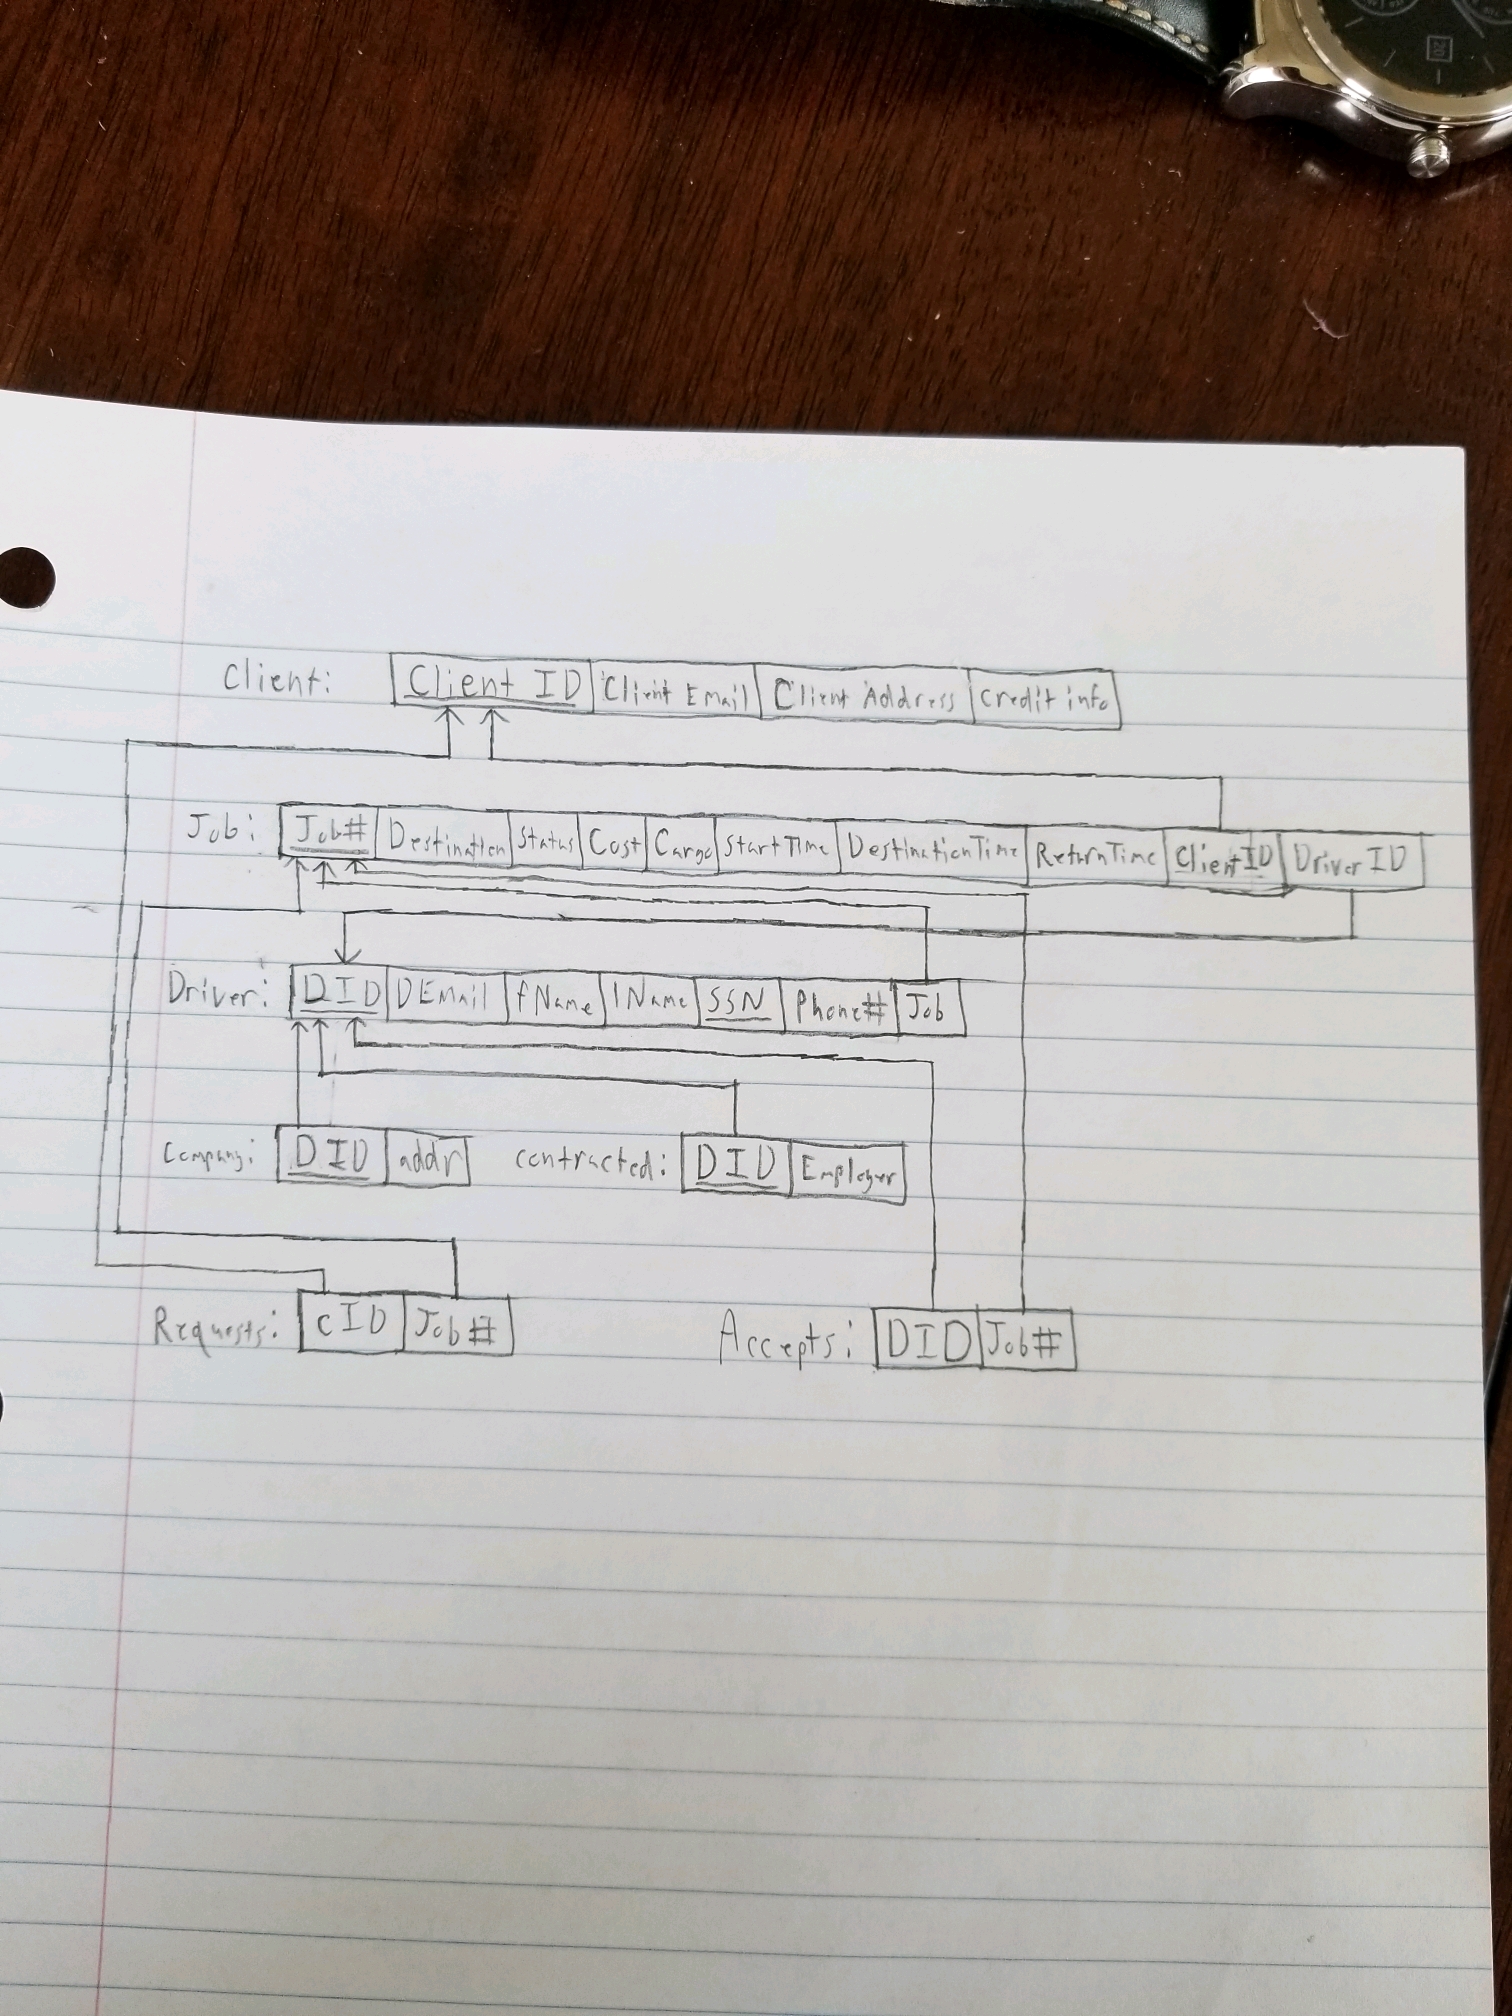 Client: Client ID Client Email Client Address Credit info
Job: Job# Destination Status Cost Cargo StartTime DestinationTime ReturnTime ClientID DriverID
Driver: DID DEmail fName lName SSN Phone# Job
Company: DID addr contracted: DID Employer
Requests: cID Job# Accepts: DID Job#